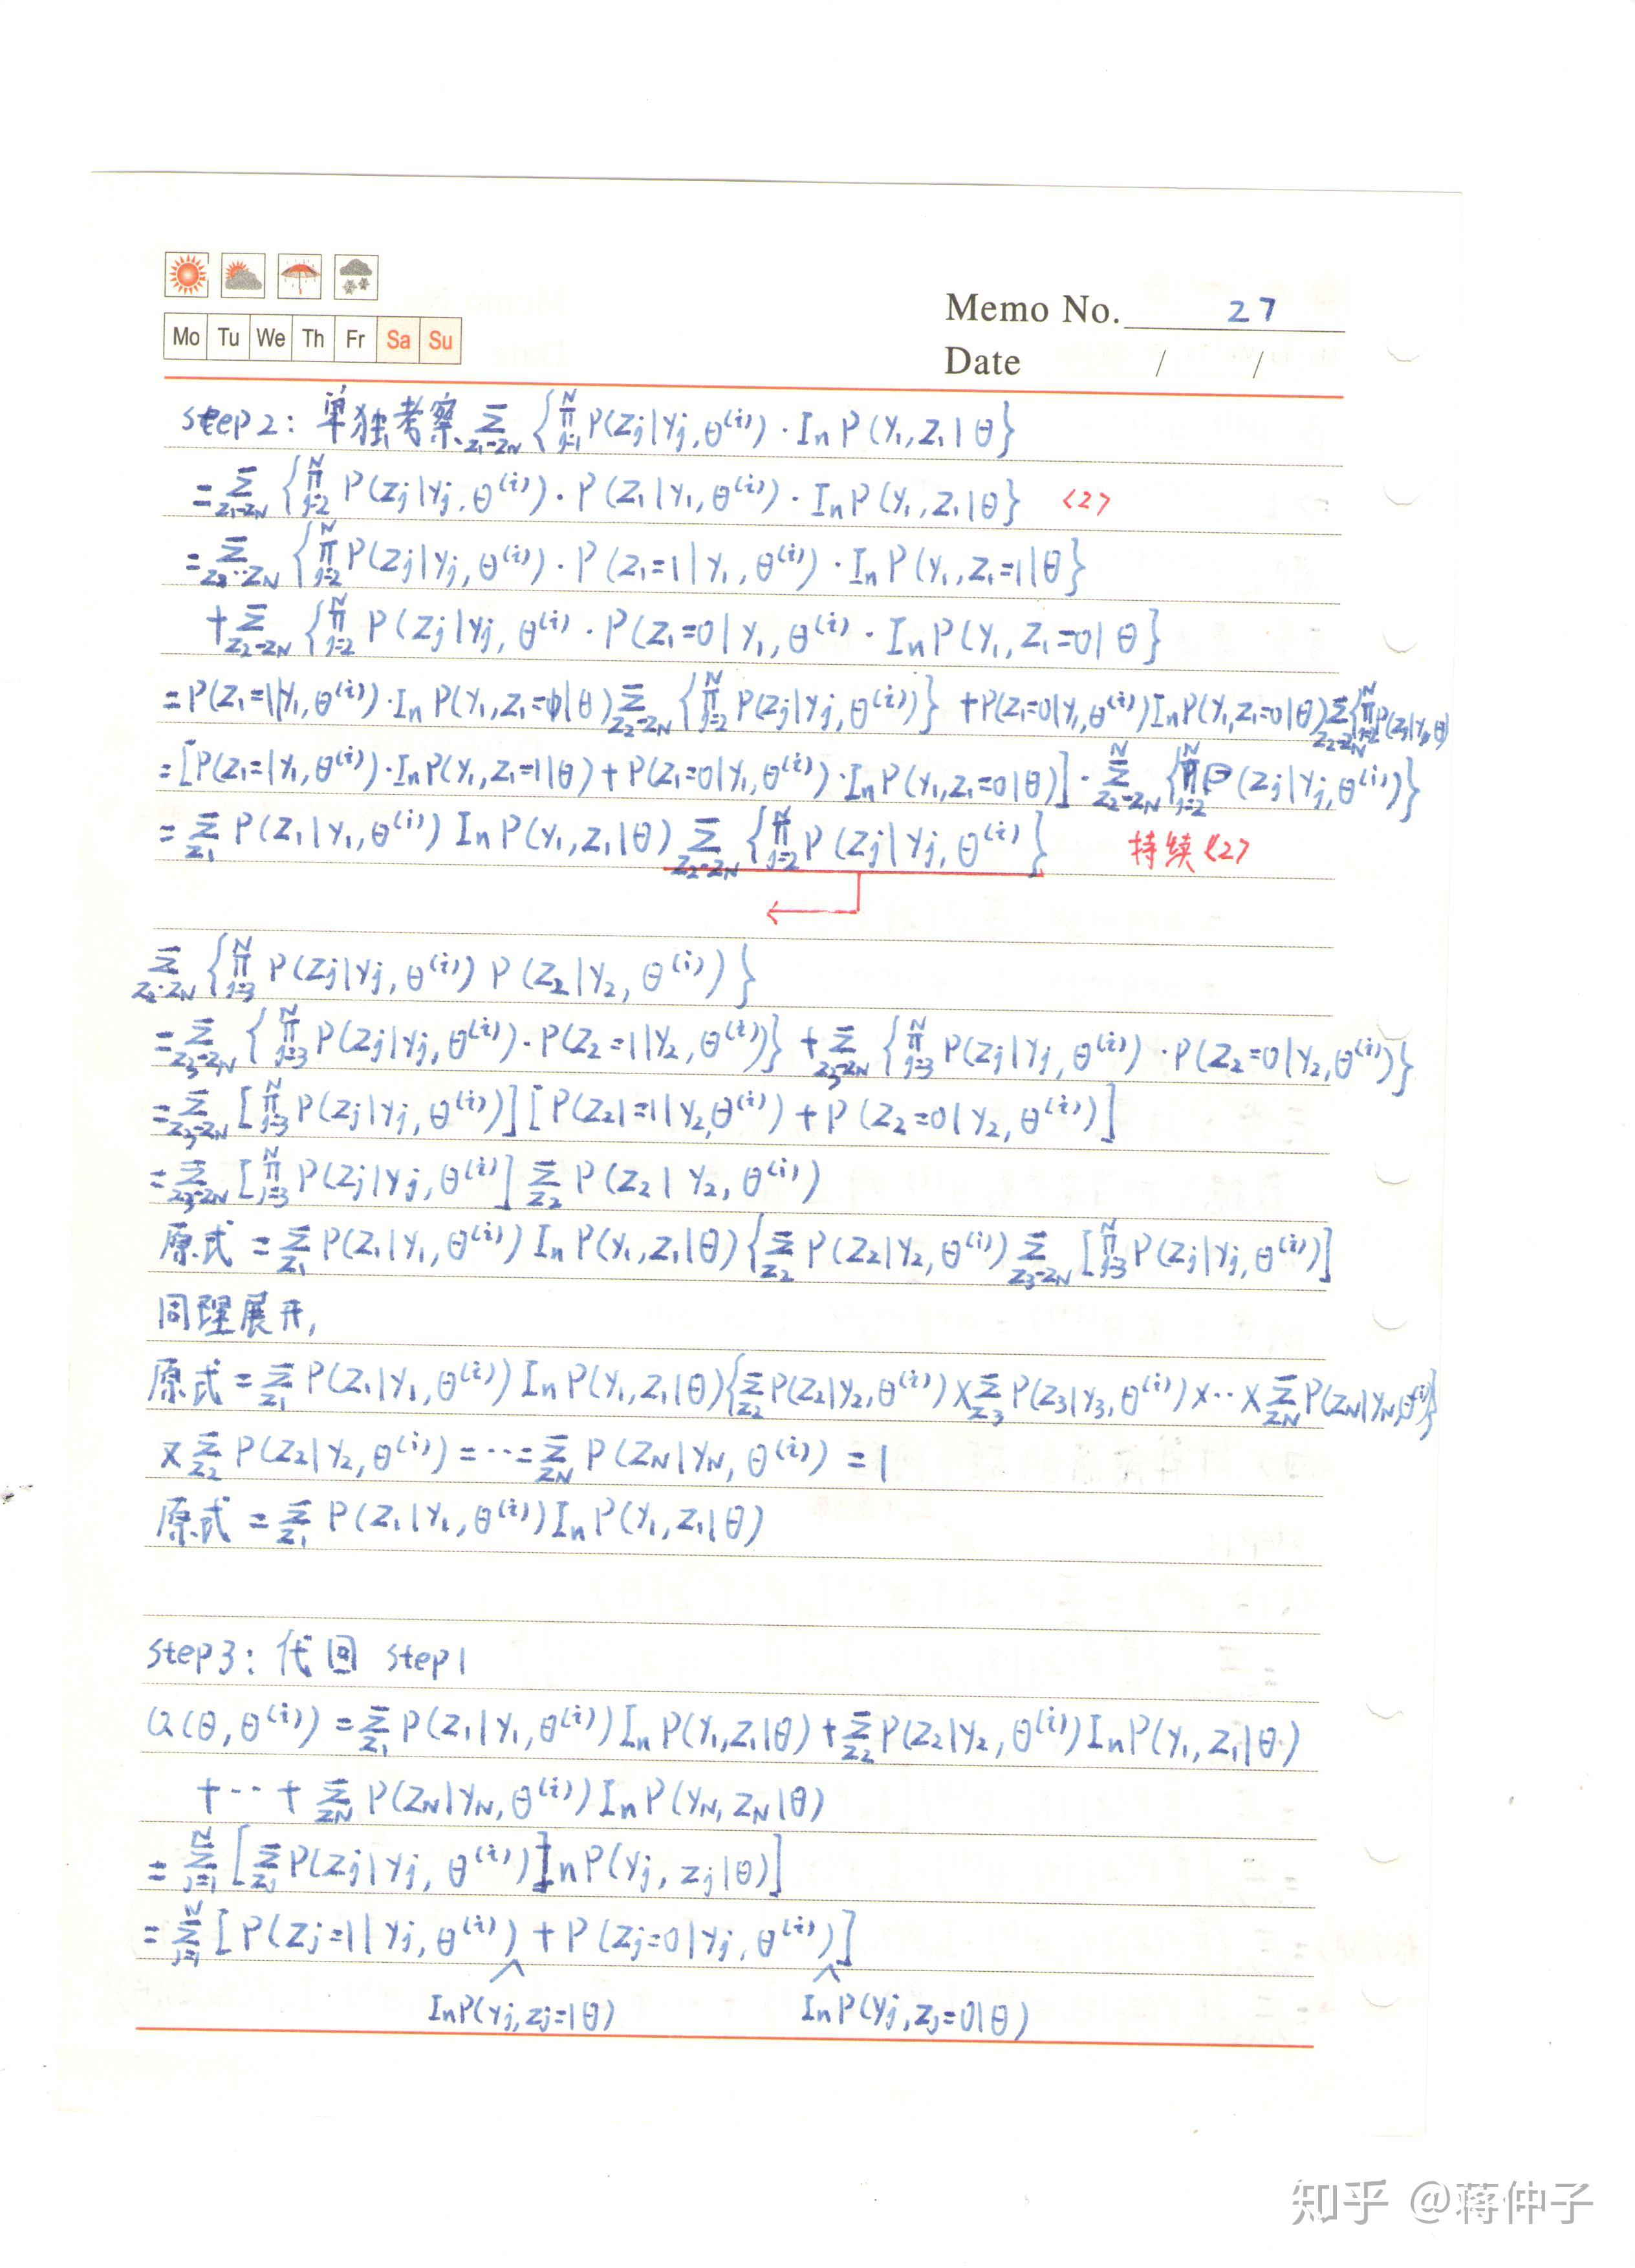 Mo Tu We Th Fr Sa Su
Memo No. 27
Date / /
Step2: 单独考察 Σ_{Z1-ZN} {∏_{j=1}^{N} P(Zj|Yj,θ^(i)) · In P(Y1,Z1|θ}
= Σ_{Z1-ZN} {∏_{j=2}^{N} P(Zj|Yj,θ^(i)) · P(Z1|Y1,θ^(i)) · In P(Y1,Z1|θ} <2>
= Σ_{Z2··ZN} {∏_{j=2}^{N} P(Zj|Yj,θ^(i)) · P(Z1=1|Y1,θ^(i)) · In P(Y1,Z1=1|θ}
+ Σ_{Z2-ZN} {∏_{j=2}^{N} P(Zj|Yj,θ^(i) · P(Z1=0|Y1,θ^(i) · In P(Y1,Z1=0|θ}
= P(Z1=1|Y1,θ^(i)) · In P(Y1,Z1=1|θ) Σ_{Z2-ZN} {∏_{j=2}^{N} P(Zj|Yj,θ^(i))} + P(Z1=0|Y1,θ^(i)) In P(Y1,Z1=0|θ) Σ_{Z2-ZN} {∏_{j=2}^{N} P(Zj|Yj,θ)
= [P(Z1=1|Y1,θ^(i)) · In P(Y1,Z1=1|θ) + P(Z1=0|Y1,θ^(i)) · In P(Y1,Z1=0|θ)] · Σ_{Z2-ZN}^{N} {∏_{j=2}^{N} P(Zj|Yj,θ^(i))}
= Σ_{Z1} P(Z1|Y1,θ^(i)) In P(Y1,Z1|θ) Σ_{Z2-ZN} {∏_{j=2}^{N} P(Zj|Yj,θ^(i)} 持续<2>
Σ_{Z2·ZN} {∏_{j=3}^{N} P(Zj|Yj,θ^(i)) P(Z2|Y2,θ^(i))}
= Σ_{Z3-ZN} {∏_{j=3}^{N} P(Zj|Yj,θ^(i)) · P(Z2=1|Y2,θ^(i))} + Σ_{Z3-ZN} {∏_{j=3}^{N} P(Zj|Yj,θ^(i)) · P(Z2=0|Y2,θ^(i))}
= Σ_{Z3-ZN} [∏_{j=3}^{N} P(Zj|Yj,θ^(i))] [P(Z2|=1|Y2,θ^(i)) + P(Z2=0|Y2,θ^(i))]
= Σ_{Z3-ZN} [∏_{j=3}^{N} P(Zj|Yj,θ^(i)] Σ_{Z2} P(Z2|Y2,θ^(i))
原式 = Σ_{Z1} P(Z1|Y1,θ^(i)) In P(Y1,Z1|θ) {Σ_{Z2} P(Z2|Y2,θ^(i)) Σ_{Z3-ZN} [∏_{j=3}^{N} P(Zj|Yj,θ^(i))]
同理展开,
原式 = Σ_{Z1} P(Z1|Y1,θ^(i)) In P(Y1,Z1|θ) {Σ_{Z2} P(Z2|Y2,θ^(i)) × Σ_{Z3} P(Z3|Y3,θ^(i)) × ·· × Σ_{ZN} P(ZN|YN,θ^(i)}
又 Σ_{Z2} P(Z2|Y2,θ^(i)) = ··· = Σ_{ZN} P(ZN|YN,θ^(i)) = 1
原式 = Σ_{Z1} P(Z1|Y1,θ^(i)) In P(Y1,Z1|θ)
Step3: 代回 Step1
Q(θ,θ^(i)) = Σ_{Z1} P(Z1|Y1,θ^(i)) In P(Y1,Z1|θ) + Σ_{Z2} P(Z2|Y2,θ^(i)) In P(Y1,Z1|θ)
+ ··· + Σ_{ZN} P(ZN|YN,θ^(i)) In P(YN,ZN|θ)
= Σ_{j=1}^{N} [Σ_{Zj} P(Zj|Yj,θ^(i)) In P(Yj,Zj|θ)]
= Σ_{j=1}^{N} [P(Zj=1|Yj,θ^(i)) + P(Zj=0|Yj,θ^(i))]
In P(Yj,Zj=1|θ) In P(Yj,Zj=0|θ)
知乎 @蒋仲子